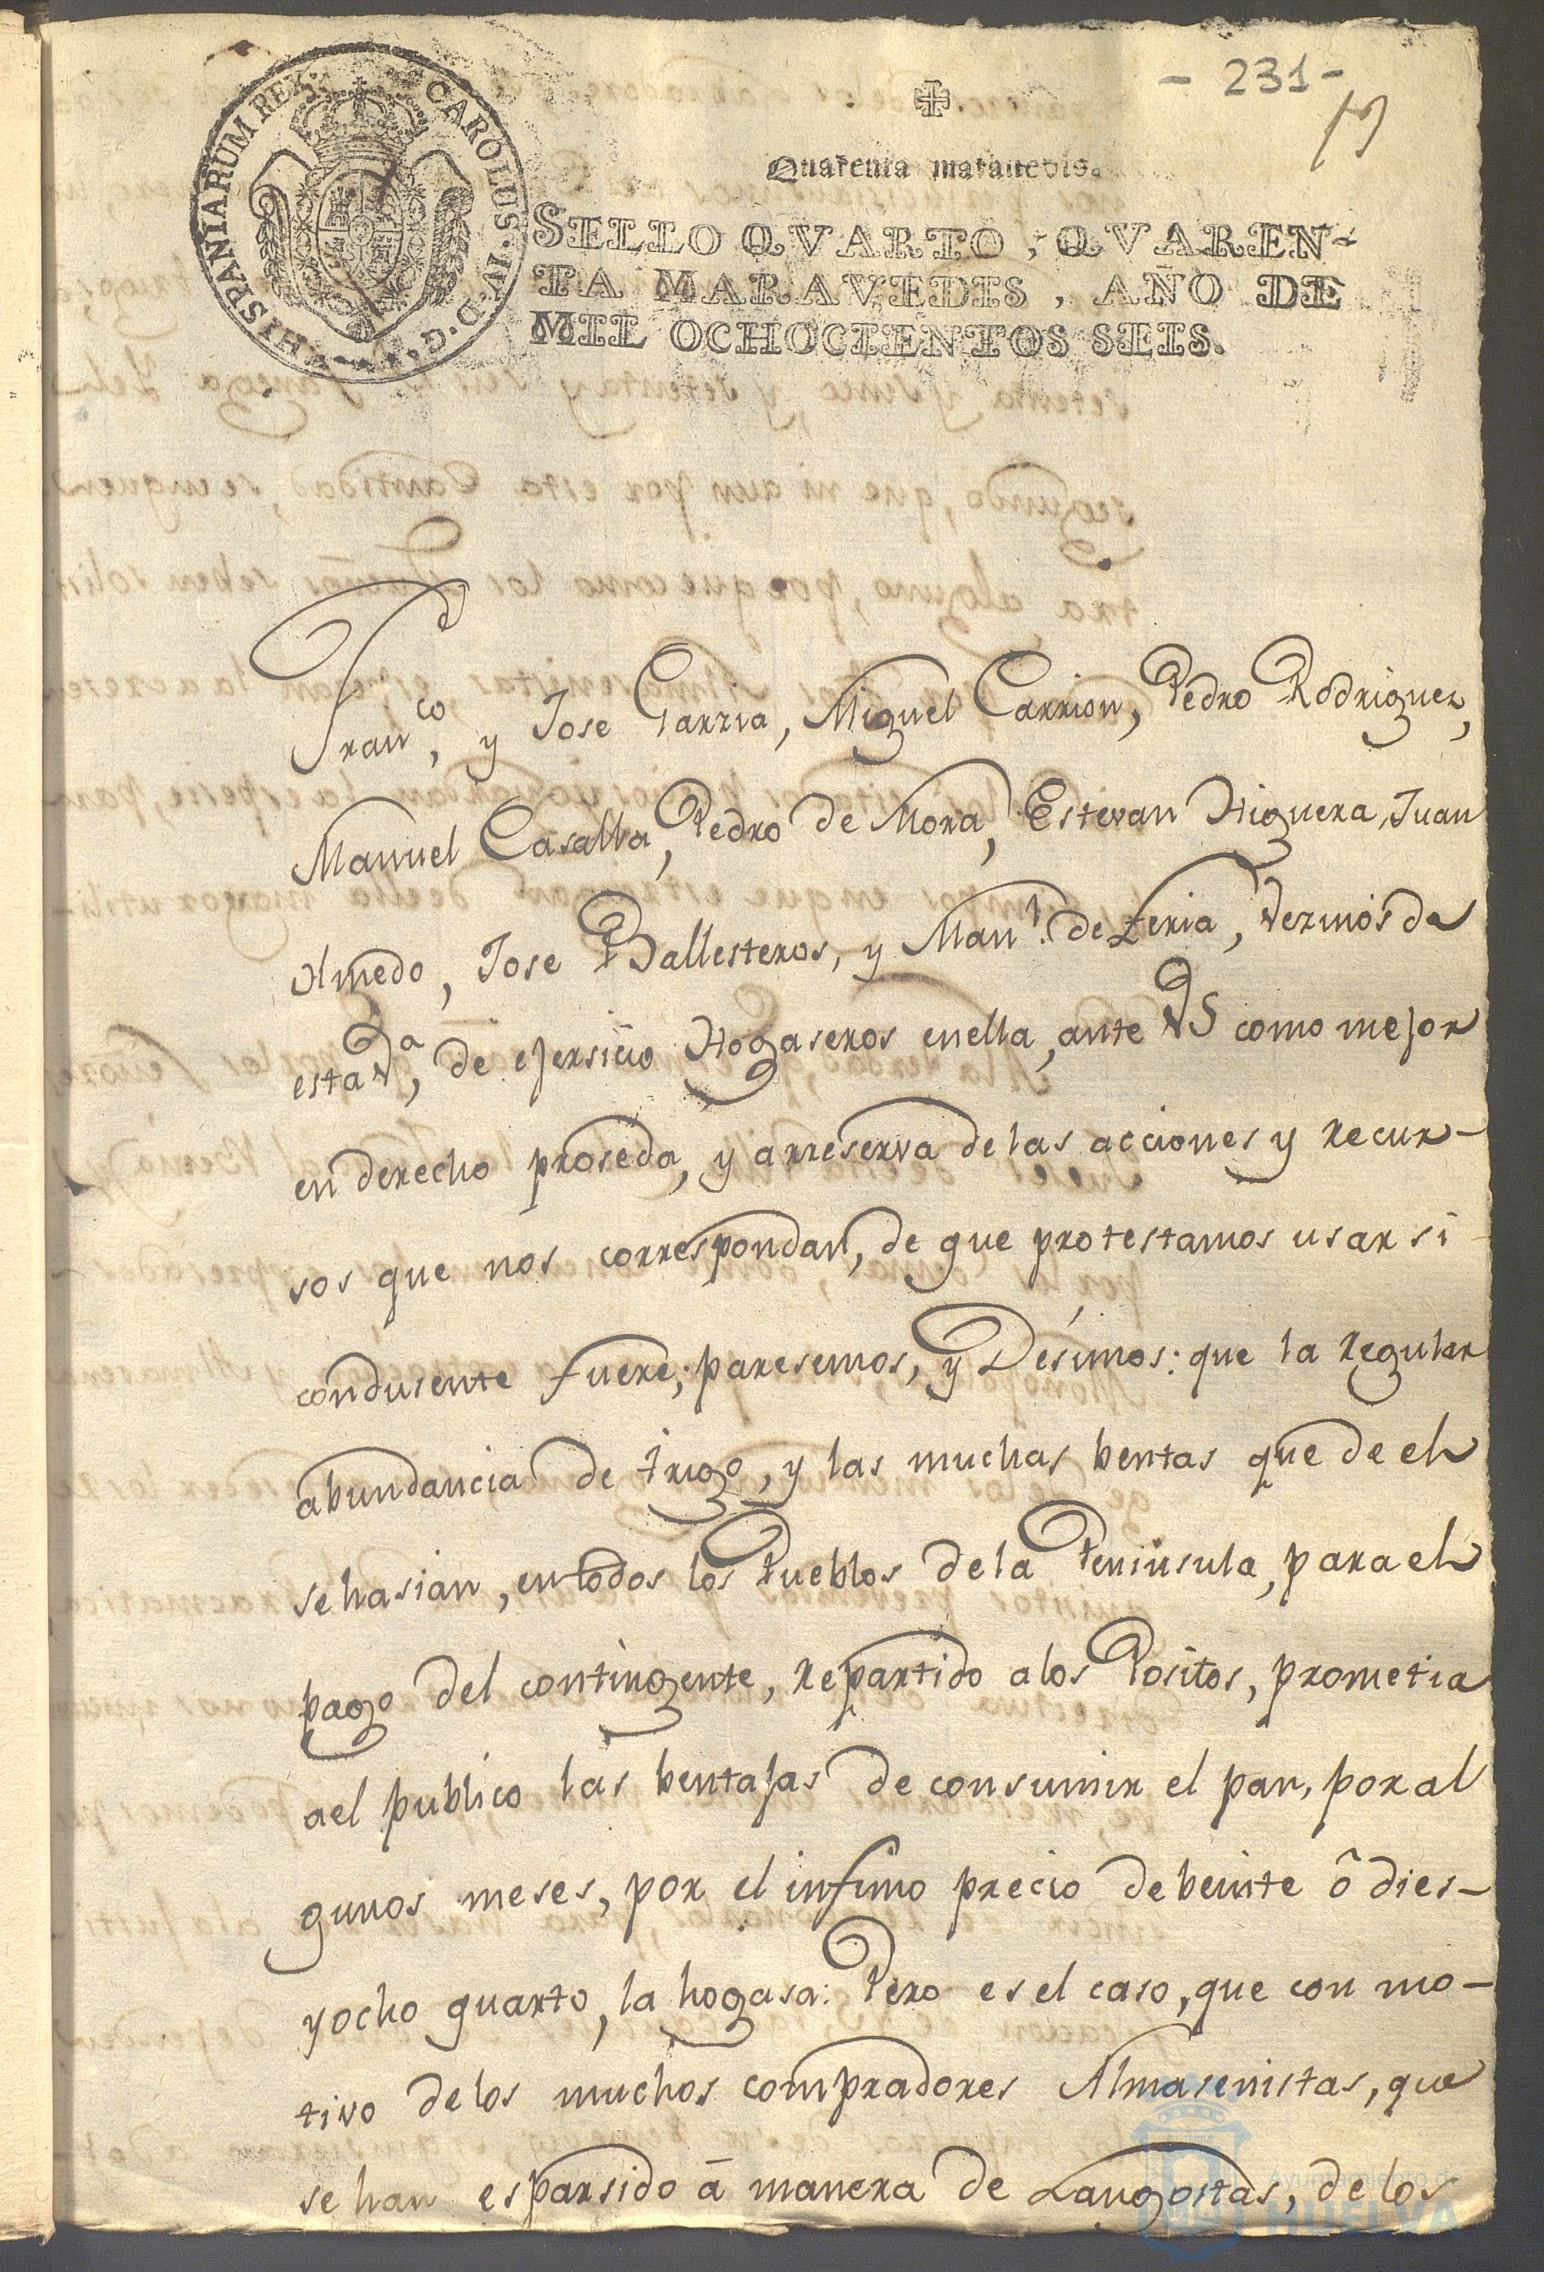 - 231 -
CAROLUS·IV·D·G· HISPANIARUM REX·
Quarenta maravedis.
SELLO QVARTO, QVAREN-
TA MARAVEDIS, AÑO DE
MIL OCHOCIENTOS SEIS.
Franco, y Jose Garzia, Miguel Carrion, Pedro Rodriguez,
Manuel Casalla, Pedro de Mora, Estevan Higuera, Juan
Olmedo, Jose Ballesteros, y Manl. de Feria, Vezinos de
esta Va, de ejersicio Hogaseros en ella, ante VS como mejor
en derecho proseda, y arreserva de las acciones y recur-
sos que nos correspondan, de que protestamos usar si
condusente fuere; paresemos, y Desimos: que la regular
abundancia de trigo, y las muchas bentas que de el
se hasian, en todos los Pueblos de la Peninsula, para el
pago del contingente, repartido a los Positos, prometia
ael publico las bentajas de consumir el pan, por al
gunos meses, por el infimo precio de beinte ô dies-
yocho quarto, la hogasa: Pero es el caso, que con mo-
tivo de los muchos compradores Almasenistas, que
se han esparsido â manera de Langostas, de los
Ayuntamiento de
HUELVA